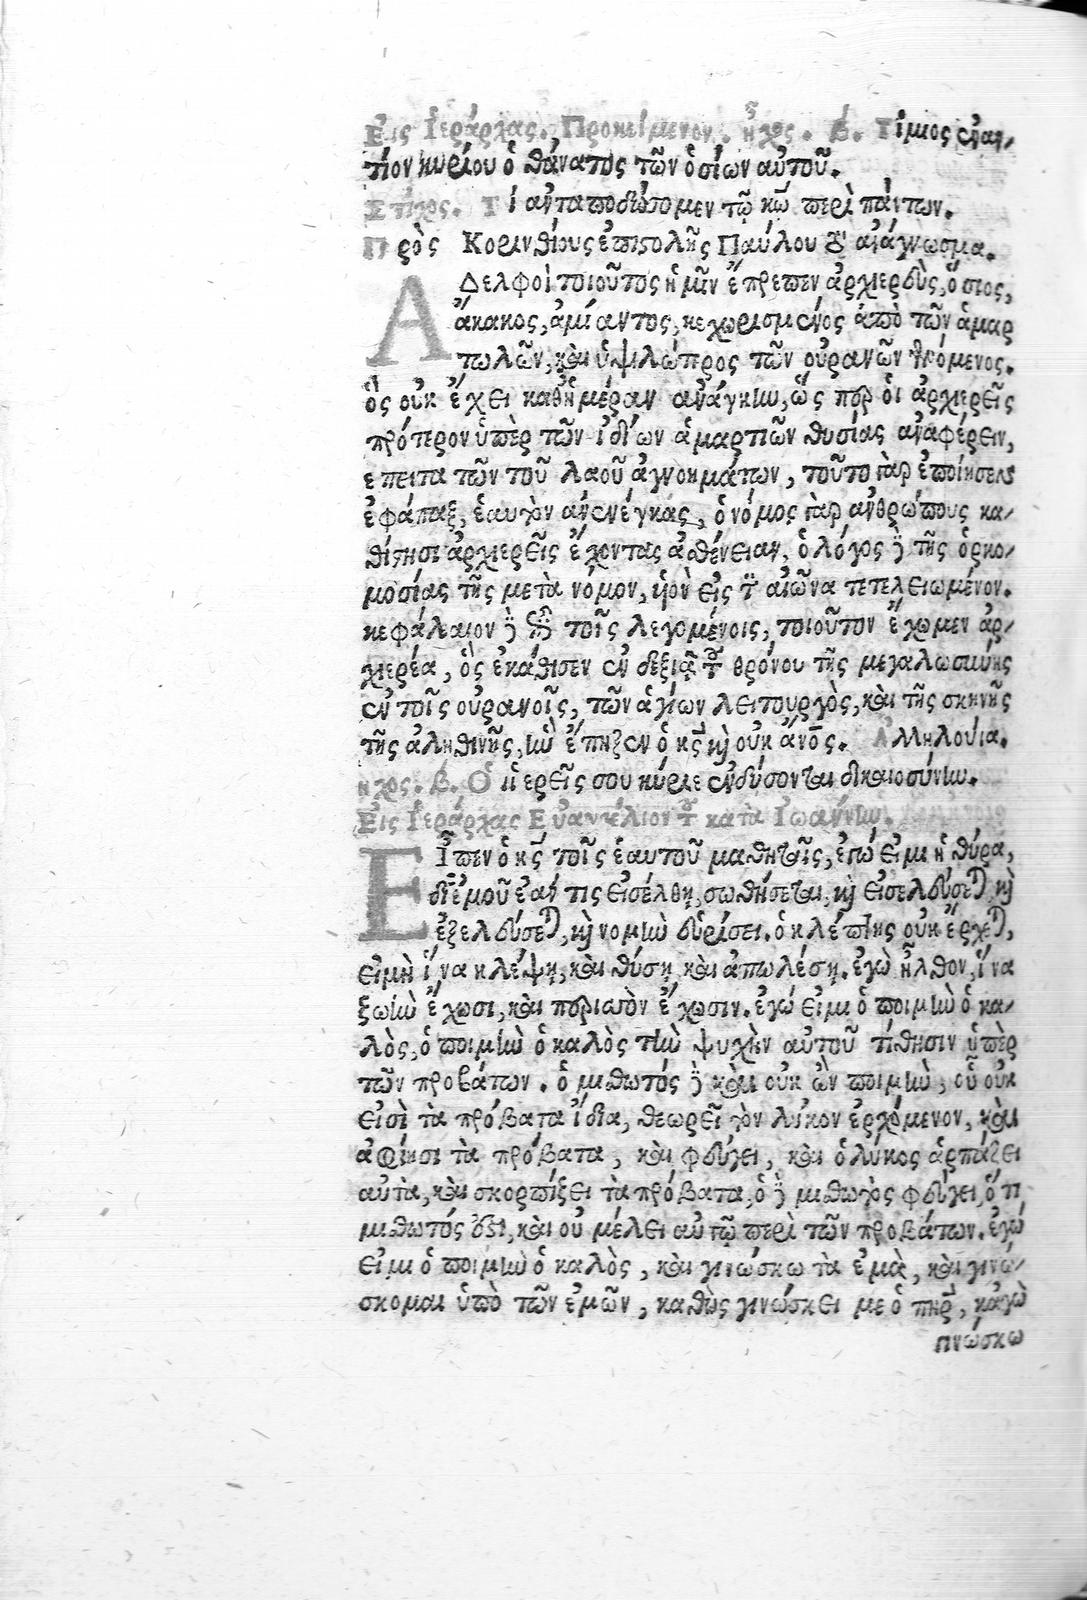 Εἰς Ἱεράρχας. Προκείμενον. ἦχος. β. Τίμιος ἐναν-
τίον κυρίου ὁ θάνατος τῶν ὁσίων αὐτοῦ.
Στίχος. Τί ἀνταποδώσομεν τῷ κῶ περὶ πάντων.
Πρὸς Κορινθίους ἐπιστολῆς Παύλου τὸ ἀνάγνωσμα.
ΑΔελφοὶ τοιοῦτος ἡμῖν ἔπρεπεν ἀρχιερεὺς, ὅσιος,
ἄκακος, ἀμίαντος, κεχωρισμένος ἀπὸ τῶν ἁμαρ
τωλῶν, καὶ ὑψιλώτερος τῶν οὐρανῶν γενόμενος.
ὃς οὐκ ἔχει καθἡμέραν ἀνάγκην, ὥσπερ οἱ ἀρχιερεῖς
πρότερον ὑπὲρ τῶν ἰδίων ἁμαρτιῶν θυσίας ἀναφέρειν,
επειτα τῶν τοῦ λαοῦ ἀγνοημάτων, τοῦτο γὰρ ἐποίησεν
ἐφάπαξ, ἑαυτὸν ἀνενέγκας, ὁ νόμος γὰρ ἀνθρώπους κα-
θίστησι ἀρχιερεῖς ἔχοντας ἀσθένειαν, ὁ λόγος δὲ τῆς ὁρκο-
μοσίας τῆς μετὰ νόμον, ὑιὸν εἰς τὸν αἰῶνα τετελειωμένον.
κεφάλαιον δὲ ἐπὶ τοῖς λεγομένοις, τοιοῦτον ἔχωμεν ἀρ-
χιερέα, ὃς ἐκάθισεν ἐν δεξιᾷ τοῦ θρόνου τῆς μεγαλωσύνης
ἐν τοῖς οὐρανοῖς, τῶν ἁγίων λειτουργὸς, καὶ τῆς σκηνῆς
τῆς ἀληθινῆς, ἣν ἔπηξεν ὁ κς καὶ οὐκ ἄνος. Ἀλληλούια.
ηχος. β. Οἱ ἱερεῖς σου κύριε ἐνδύσονται δικαιοσύνην.
Εἰς Ἱεράρχας Εὐαγγέλιον τοῦ κατὰ Ἰωάννην.
ΕἾπεν ὁ κς τοῖς ἑαυτοῦ μαθηταῖς, ἐγώ εἰμι ἡ θύρα,
διἐμοῦ ἐάν τις εἰσέλθῃ, σωθήσεται, καὶ εἰσελεύσεται, καὶ
ἐξελεύσεται, καὶ νομὴν εὑρίσει. ὁ κλέπτης οὐκ ἔρχεται,
εἰμὴ ἵνα κλέψῃ, καὶ θύσῃ, καὶ ἀπωλέσῃ. ἐγὼ ἦλθον, ἵνα
ζωὴν ἔχωσι, καὶ περισσὸν ἔχωσιν. ἐγώ εἰμι ὁ ποιμὴν ὁ κα-
λὸς, ὁ ποιμὴν ὁ καλὸς τὴν ψυχὴν αὐτοῦ τίθησιν ὑπὲρ
τῶν προβάτων. ὁ μισθωτός δὲ καὶ οὐκ ὢν ποιμὴν, οὗ οὐκ
εἰσὶ τὰ πρόβατα ἴδια, θεωρεῖ τὸν λύκον ἐρχόμενον, καὶ
ἀφίησι τὰ πρόβατα, καὶ φεύγει, καὶ ὁ λύκος ἁρπάζει
αὐτὰ, καὶ σκορπίζει τὰ πρόβατα, ὁ δὲ μισθωτὸς φεύγει, ὅτι
μισθωτός ἐστι, καὶ οὐ μέλει αὐτῷ περὶ τῶν προβάτων. ἐγώ
εἰμι ὁ ποιμὴν ὁ καλὸς, καὶ γινώσκω τὰ ἐμὰ, καὶ γινώ-
σκομαι ὑπὸ τῶν ἐμῶν, καθὼς γινώσκει με ὁ πηρ, κἀγὼ
γινώσκω